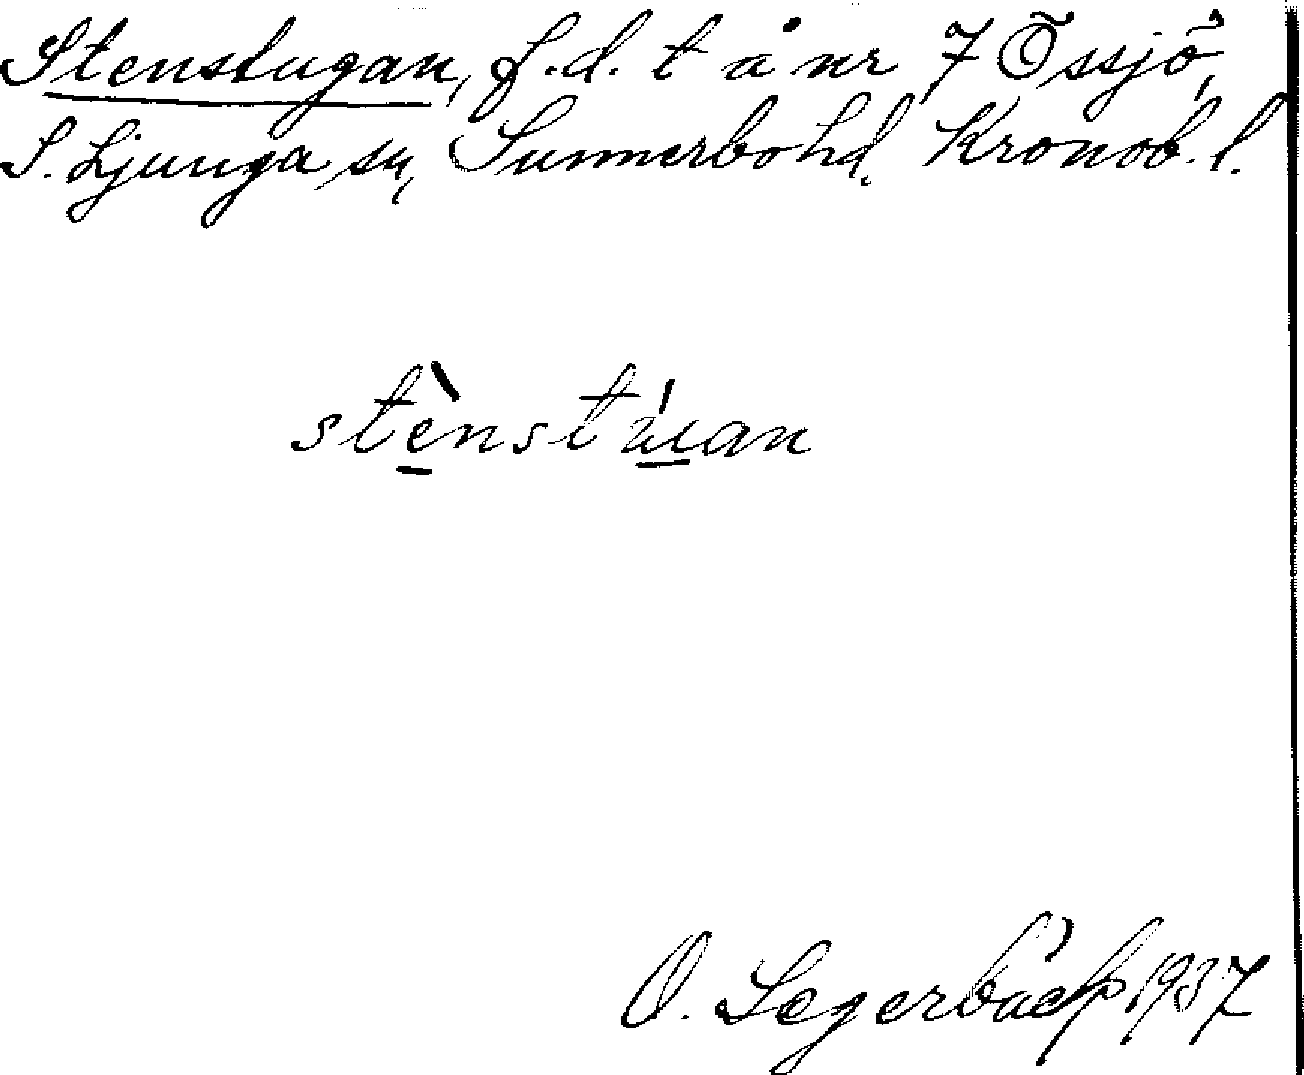 Stenstugan, f.d. t å nr 7 Össjö,
S. Ljunga sn, Sunnerbo hd, Kronob. l.
stènstúan
O. Segerbäck 1937